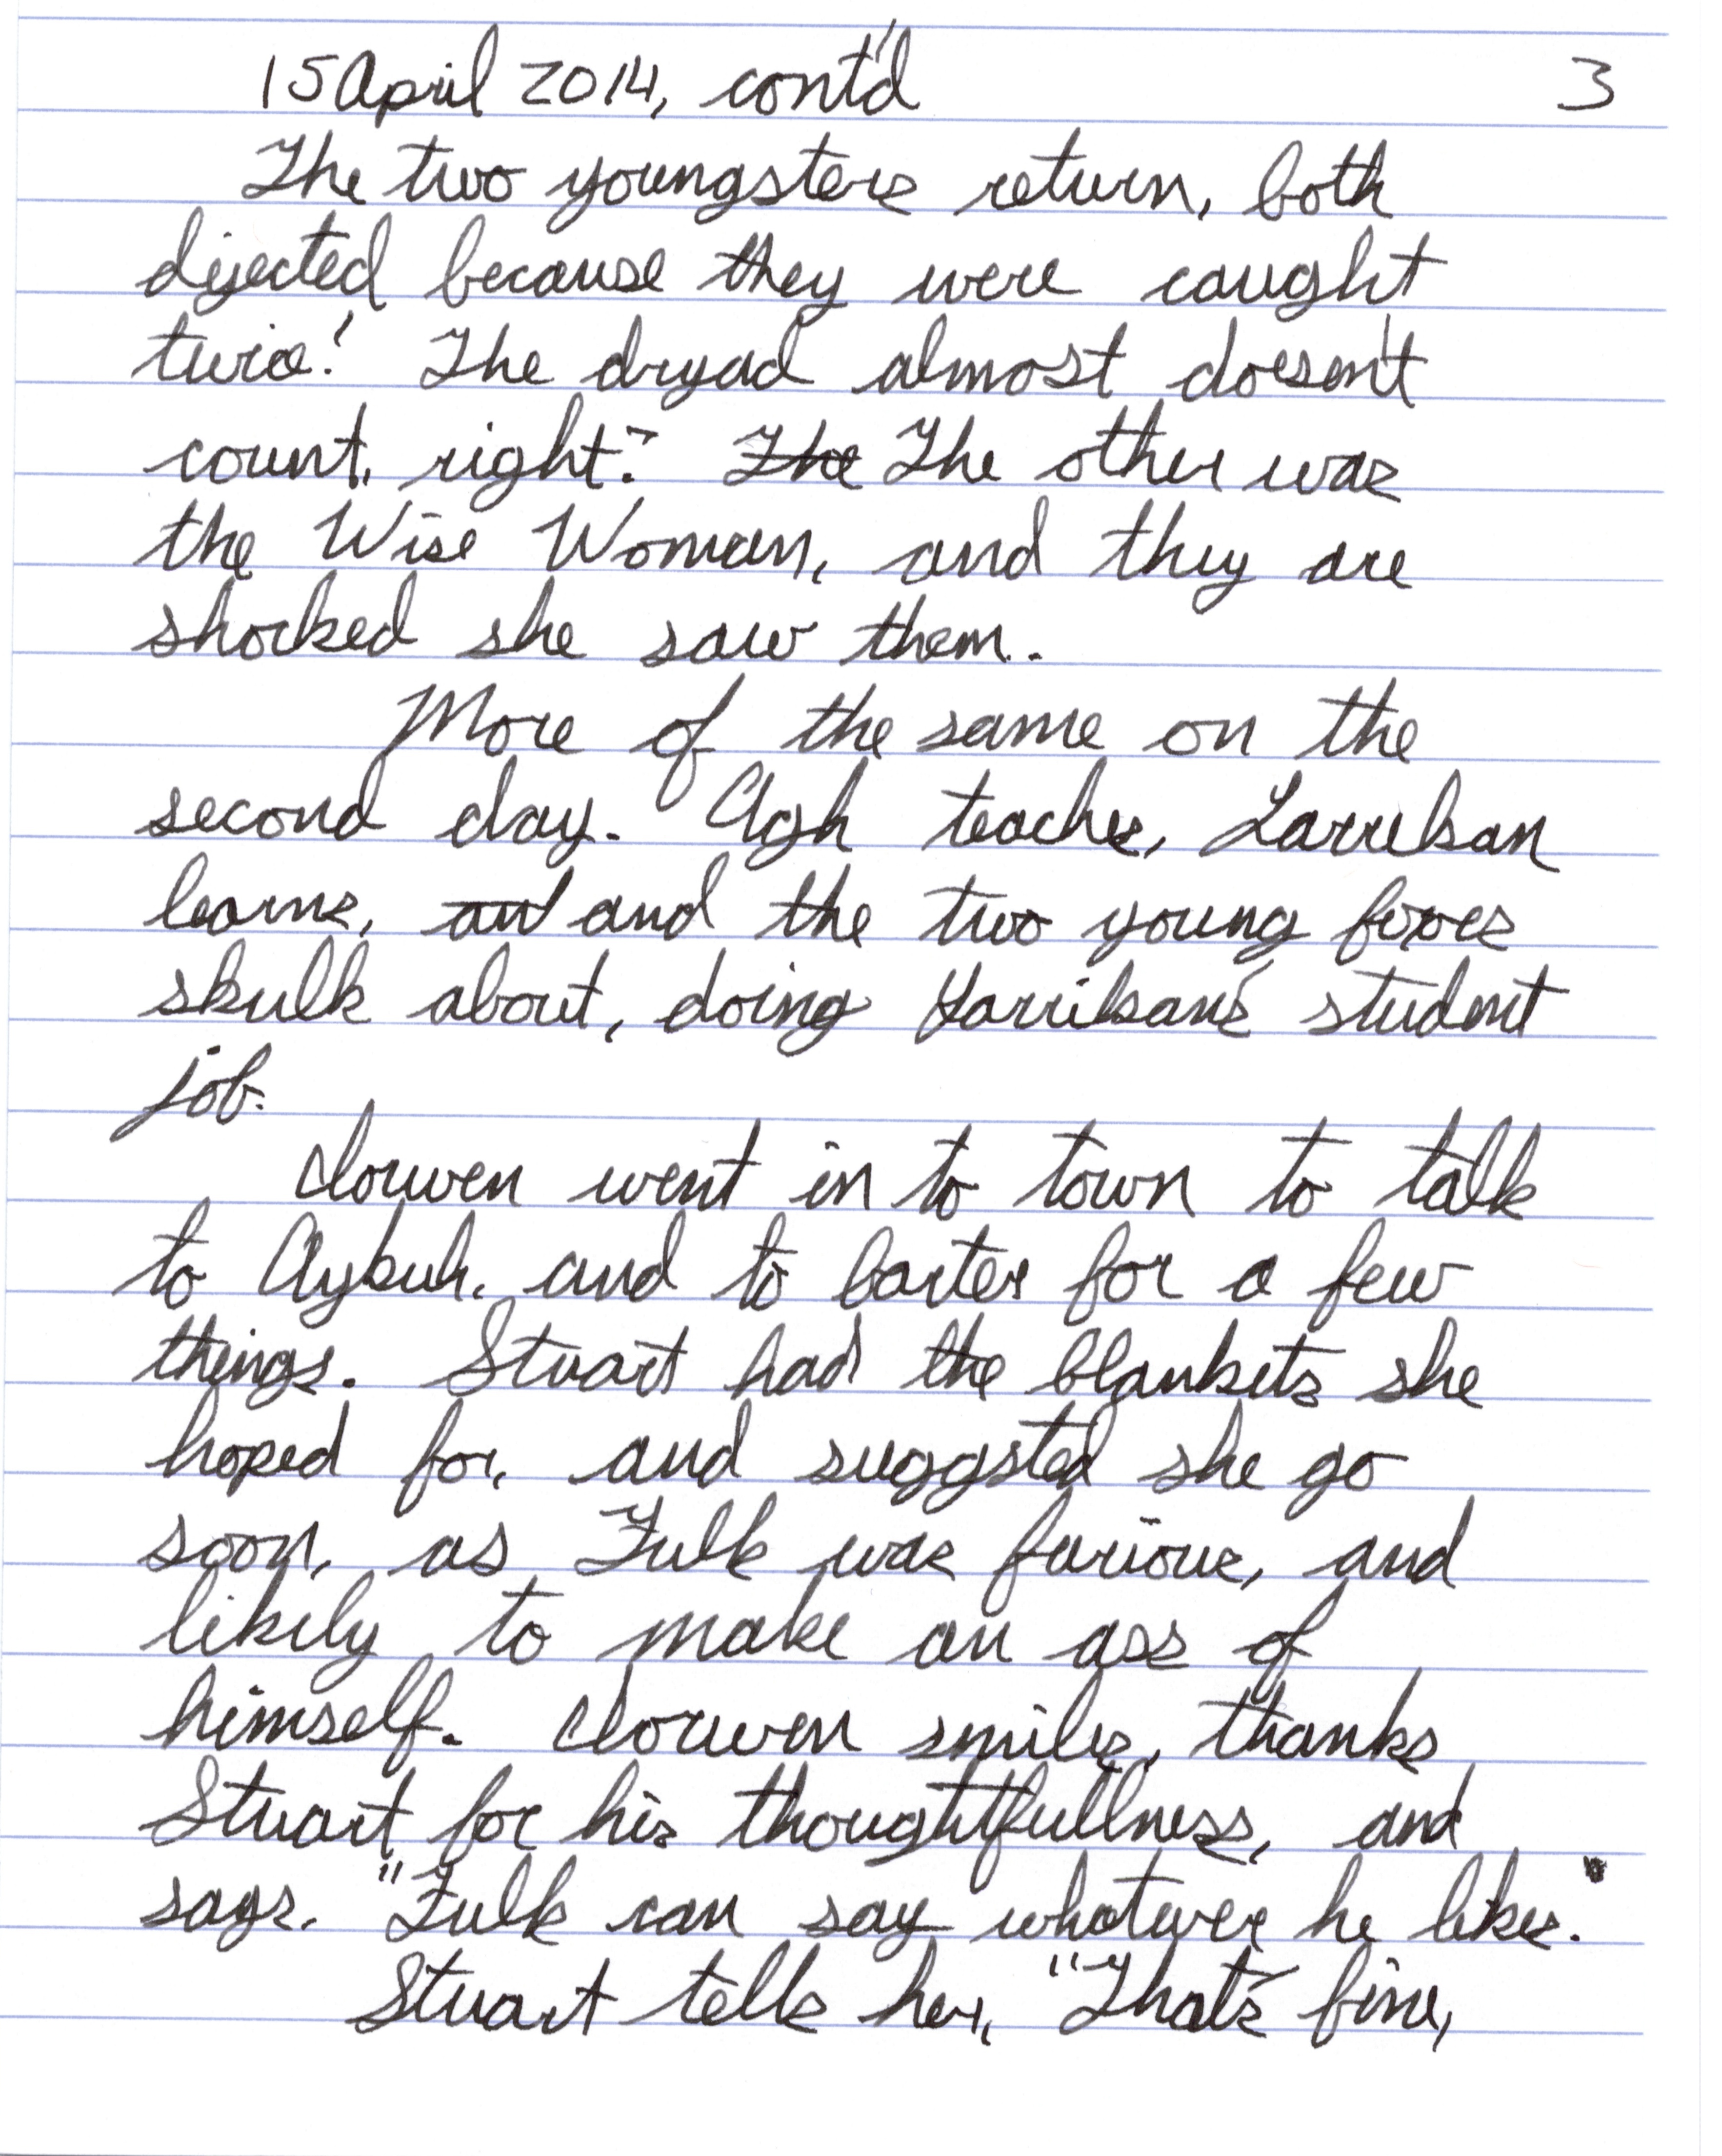 15 April 2014, cont'd 3
The two youngsters return, both
dejected because they were caught
twice! The dryad almost doesn't
count, right? The The other was
the Wise Woman, and they are
shocked she saw them.
More of the same on the
second day. Agh teaches, Larrikan
learns, and and the two young foxes
skulk about, doing Larrikan's student
job.
Iorwen went in to town to talk
to Aykuh, and to barter for a few
things. Stuart had the blankets she
hoped for, and suggsted she go
soon, as Fulk was furious, and
likely to make an ass of
himself. Iorwen smiles, thanks
Stuart for his thoughtfullness, and
says, "Fulk can say whatever he likes."
Stuart tells her, "That's fine,